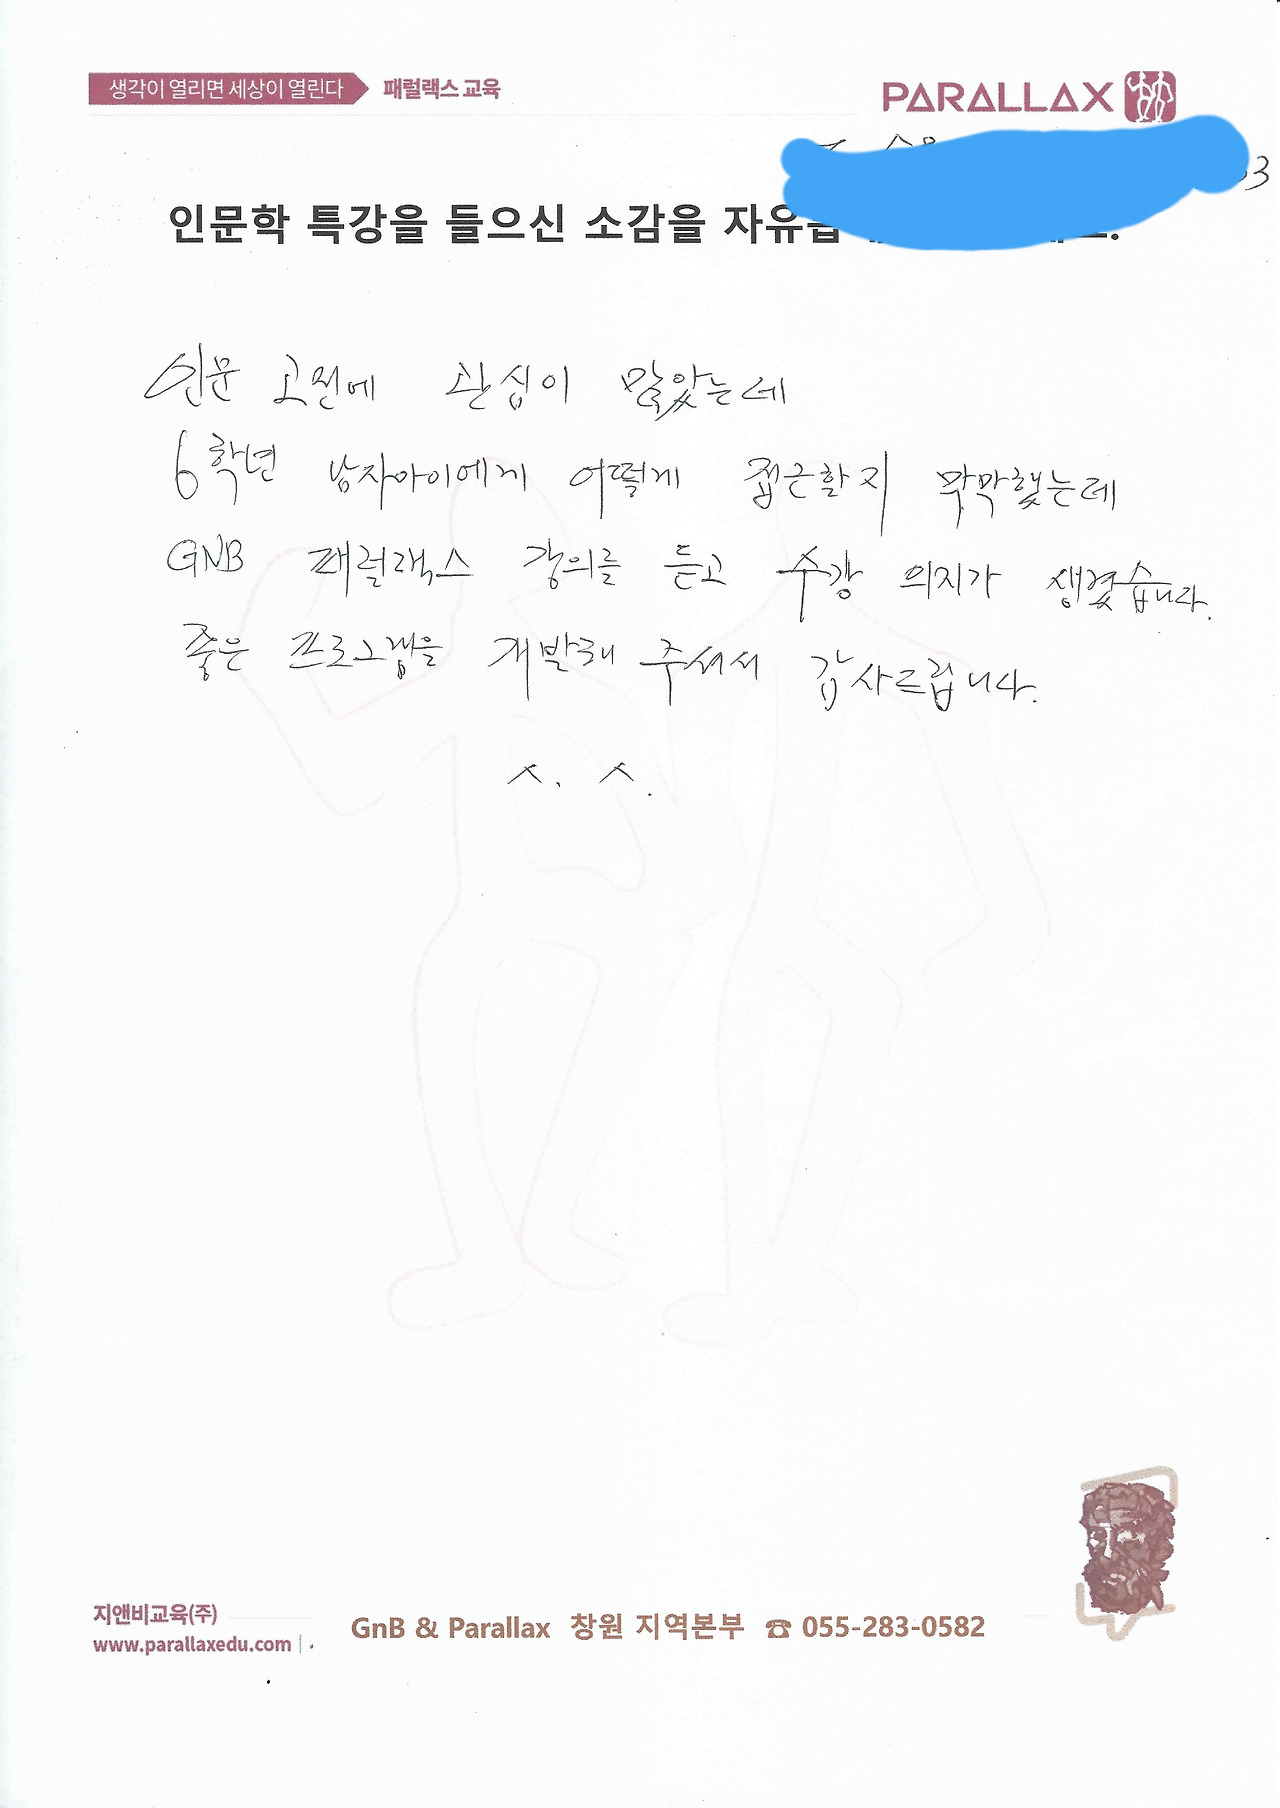 생각이 열리면 세상이 열린다 패럴랙스 교육
PARALLAX
인문학 특강을 들으신 소감을
인문 고전에 관심이 많았는데
6학년 남자아이에게 어떻게 접근할지 막막했는데
GNB 패럴랙스 강의를 듣고 수강 의지가 생겼습니다.
좋은 프로그램을 개발해 주셔서 감사드립니다.
ㅅ. ㅅ.
지앤비교육(주)
www.parallaxedu.com
GnB & Parallax 창원 지역본부 ☎ 055-283-0582